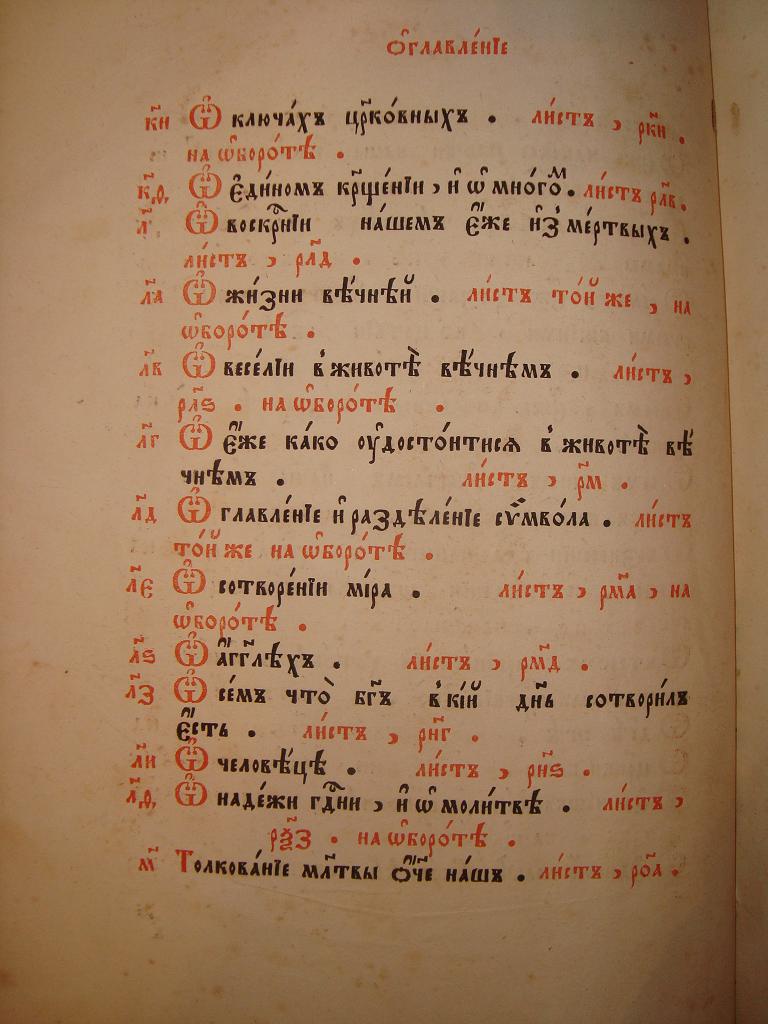 Ѻ҆главле́нїе
к҃и Ѽ ключа́хъ цр҃ко́вныхъ . ли́стъ , рк҃и .
на ѡ҆боро́тѣ .
к҃ѳ, Ѽ є҆ди́номъ кр҃ще́нїи , и҆ ѡ мно́гоⷨ . ли́стъ рл҃в .
л҃ Ѽ воскр҃нїи на́шемъ є҆́же и҆з̾ ме́ртвыхъ .
ли́стъ , рл҃д .
л҃а Ѽ жи́зни вѣ́чнѣй . ли́стъ то́й же , на
ѡ҆боро́тѣ .
л҃в Ѽ весе́лїи в̾ животѣ̀ вѣ́чнѣмъ . ли́стъ ,
рл҃ѕ . на ѡ҆боро́тѣ .
л҃г Ѽ є҆́же ка́ко оу҆досто́итисѧ в̾ животѣ̀ вѣ́
чнѣмъ . ли́стъ , рм҃ .
л҃д Ѽ главле́нїе и҆ раздѣле́нїе сѷмво́ла . ли́стъ
то́й же на ѡ҆боро́тѣ .
л҃є Ѽ сотворе́нїи мі́ра . ли́стъ , рм҃а , на
ѡ҆боро́тѣ .
л҃ѕ Ѽ а҆́гг҃лѣхъ . ли́стъ , рм҃д .
л҃з Ѽ се́мъ что̀ бг҃ъ в̾ кі́й дн҃ь сотвори́лъ
є҆́сть . ли́стъ , рн҃г .
л҃и Ѽ человѣ́цѣ . ли́стъ , рн҃ѕ .
л҃ѳ, Ѽ наде́жи гд҃ни , и҆ ѡ моли́твѣ . ли́стъ ,
рѯ҃з . на ѡ҆боро́тѣ .
м҃ Толкова́нїе мл҃твы ѻ҆́ч҃е на́шъ . ли́стъ , ро҃а .